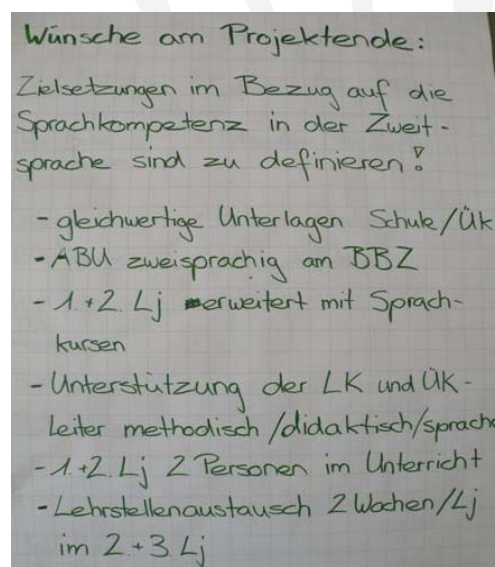 Wünsche am Projektende:
Zielsetzungen im Bezug auf die
Sprachkompetenz in der Zweit-
sprache sind zu definieren!
- gleichwertige Unterlagen Schule/ük
- ABU zweisprachig am BBZ
- 1.+2. Lj erweitert mit Sprach-
kursen
- Unterstützung der LK und ÜK-
Leiter methodisch/didaktisch/sprach
- 1.+2. Lj 2 Personen im Unterricht
- Lehrstellenaustausch 2 Wochen/Lj
im 2.+3. Lj